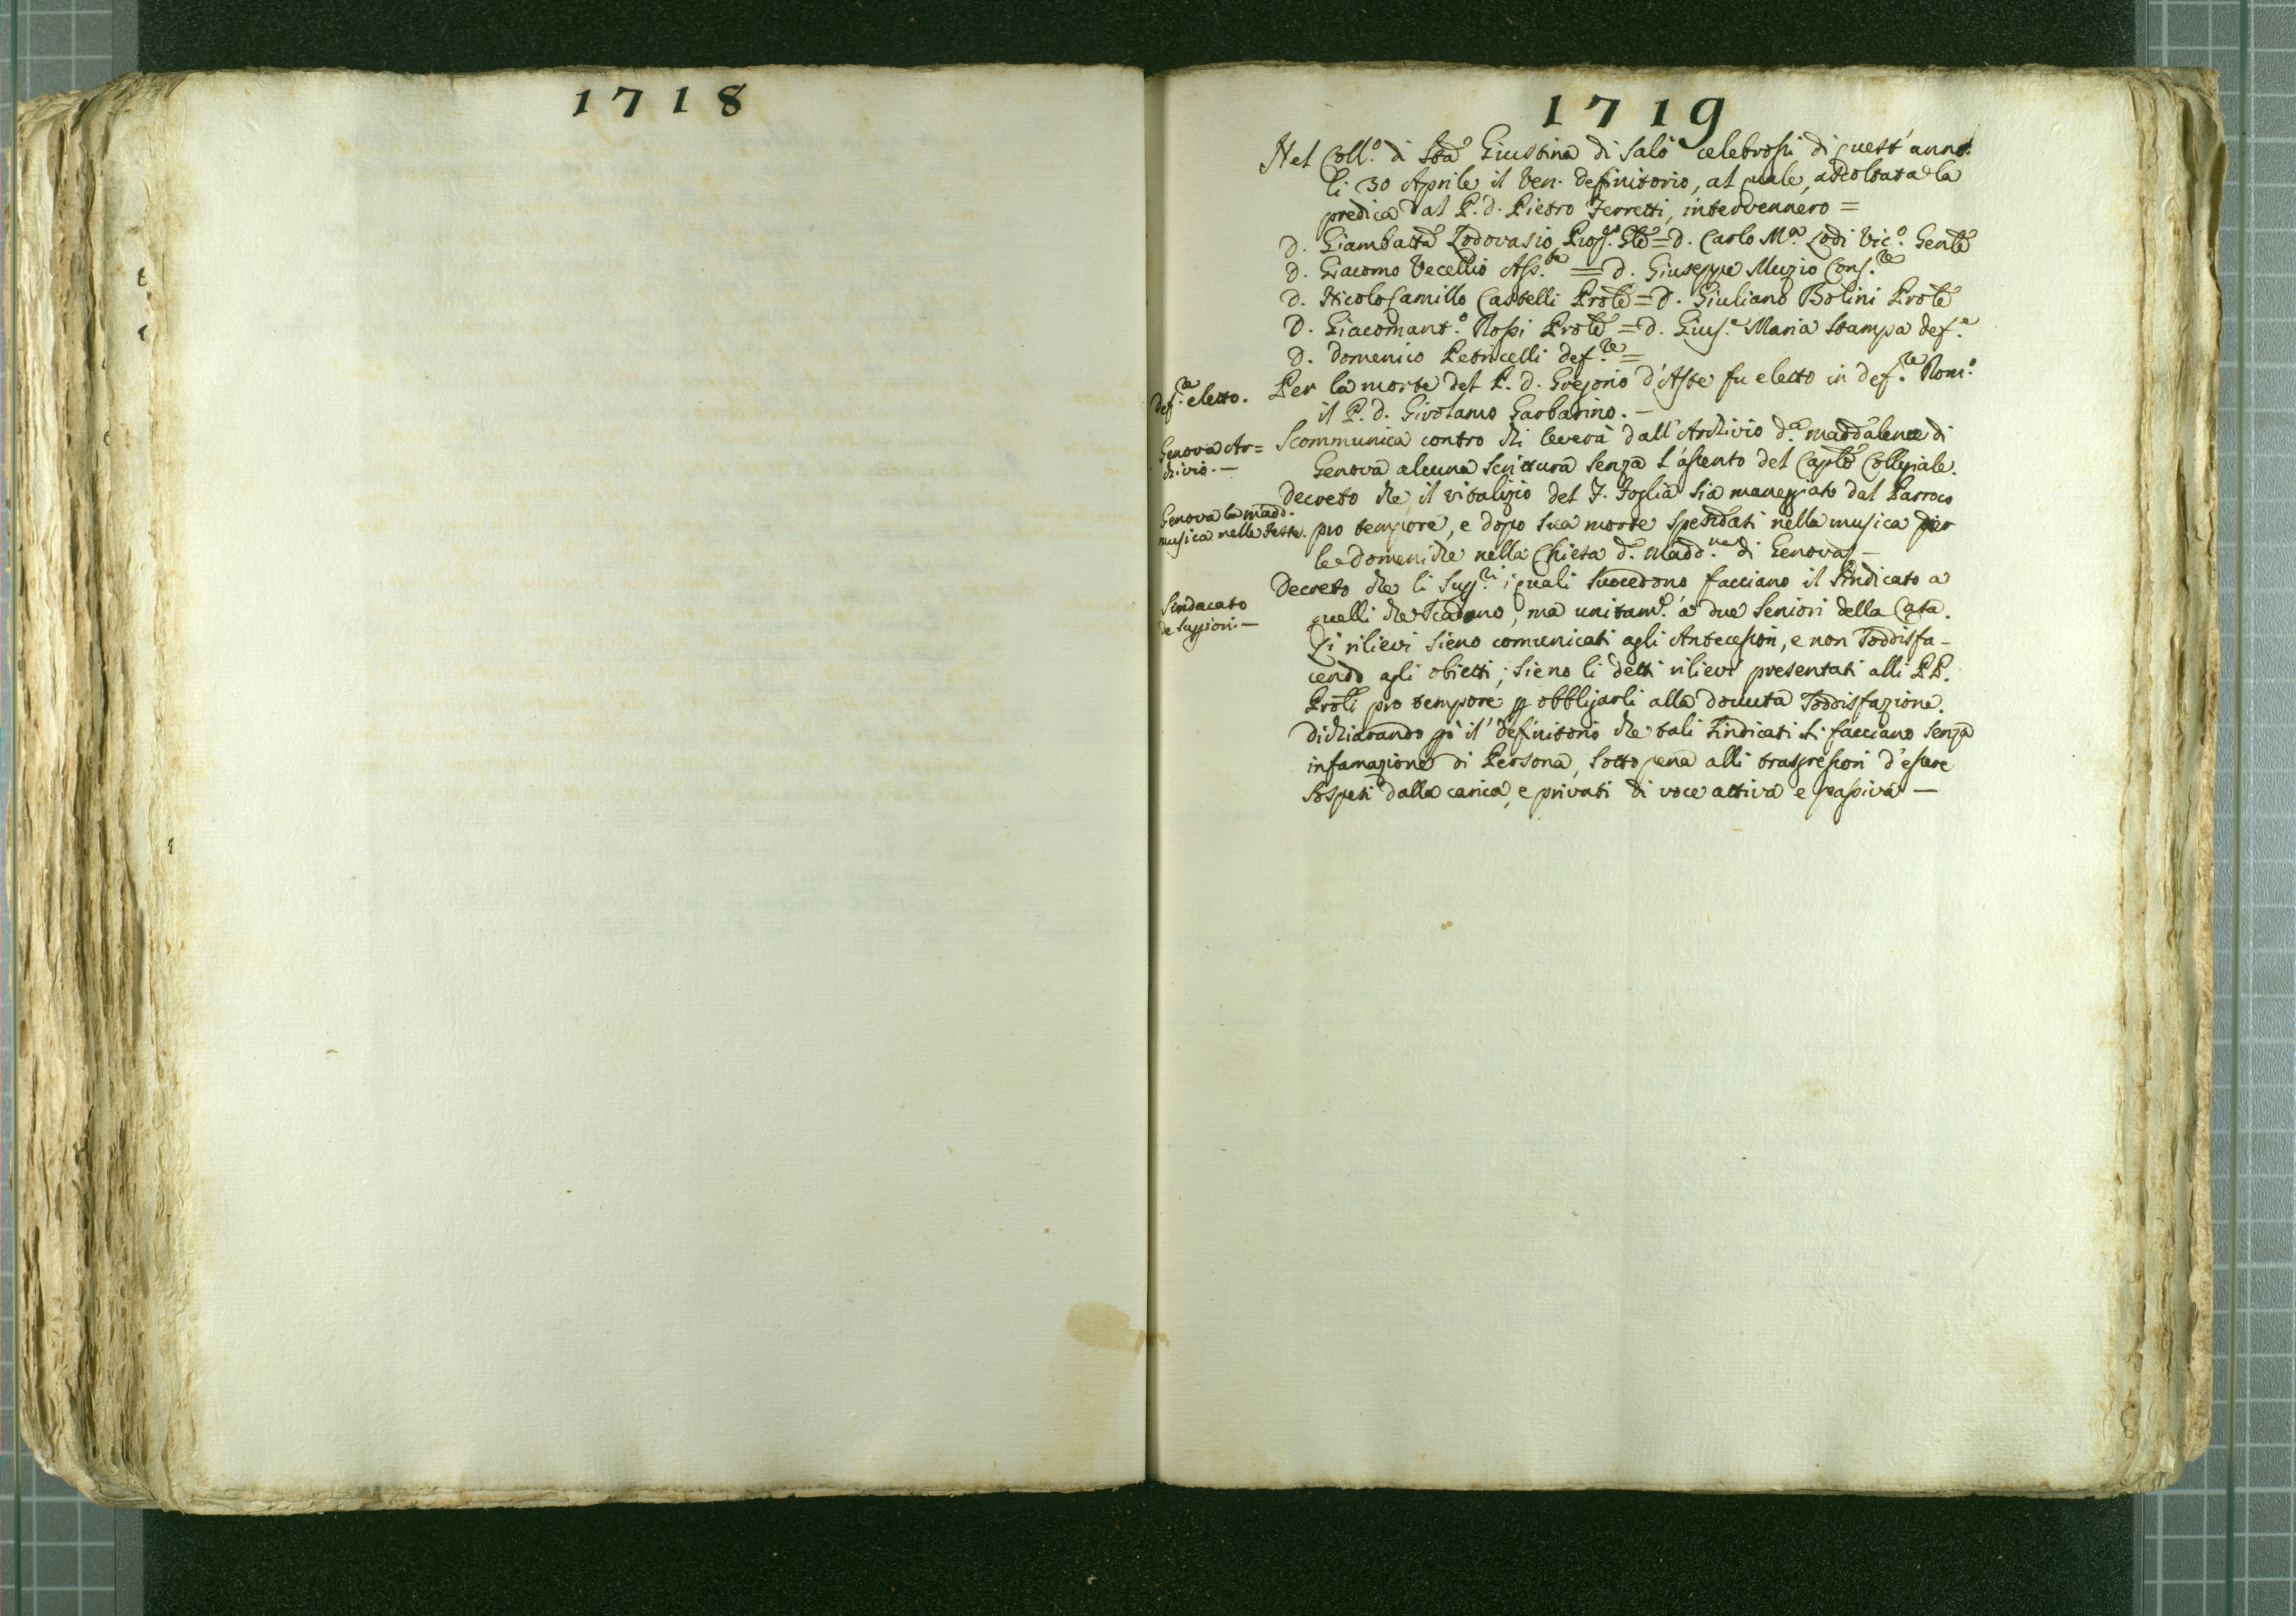 1718
1719
Nel Coll.º di Sta Giustina di Salò celebrossi di quest'anno
li 30 Aprile il Ven. Definitorio, al quale, ascoltata la
predica dal P. D. Pietro Ferretti, intervennero =
D. Giambatta Lodovasio Prep.º Gle = D. Carlo M.ª Lodi Vic.º Genle
D. Giacomo Vecellio Ass.te = D. Giuseppe Muzio Cons.re
D. Nicolo Camillo Castelli Prole = D. Giuliano Bolini Prole
D. Giacomant.º Rossi Prole = D. Gius.e Maria Stampa def.e
D. Domenico Petricelli def.re =
def.re eletto.
Per la morte del P. D. Gregorio d'Aste fu eletto in def.re Rom.º
il P. D. Girolamo Garbarino. —
Genova Ar=
chivio. —
Scommunica contro chi leverà dall'Archivio d.ª Maddalena di
Genova alcuna scrittura senza l'assento del Caplo Collegiale.
Genova la Madd.
musica nelle feste.
Decreto che il vitalizio del F. Foglia sia maneggiato dal Parroco
pro tempore, e dopo sua morte spendati nella musica per
le Domeniche nella Chiesa d. Madd.na di Genova —
Sindacato
de Supriori. —
Decreto che li Sup.ri i quali succedono facciano il Sindicato a
quelli che scadono, ma unitam.e a due Seniori della Casa.
Li rilievi sieno comunicati agli Antecessori, e non soddisfa-
cendo agli obietti; sieno li detti rilievi presentati alli PP.
Proli pro tempore p obbligarli alla dovuta soddisfazione.
dichiarando pò il definitorio che tali sindicati si facciano senza
infamazione di Persona, sotto pena alli trasgressori d'essere
sospesi dalla carica, e privati di voce attiva e passiva —